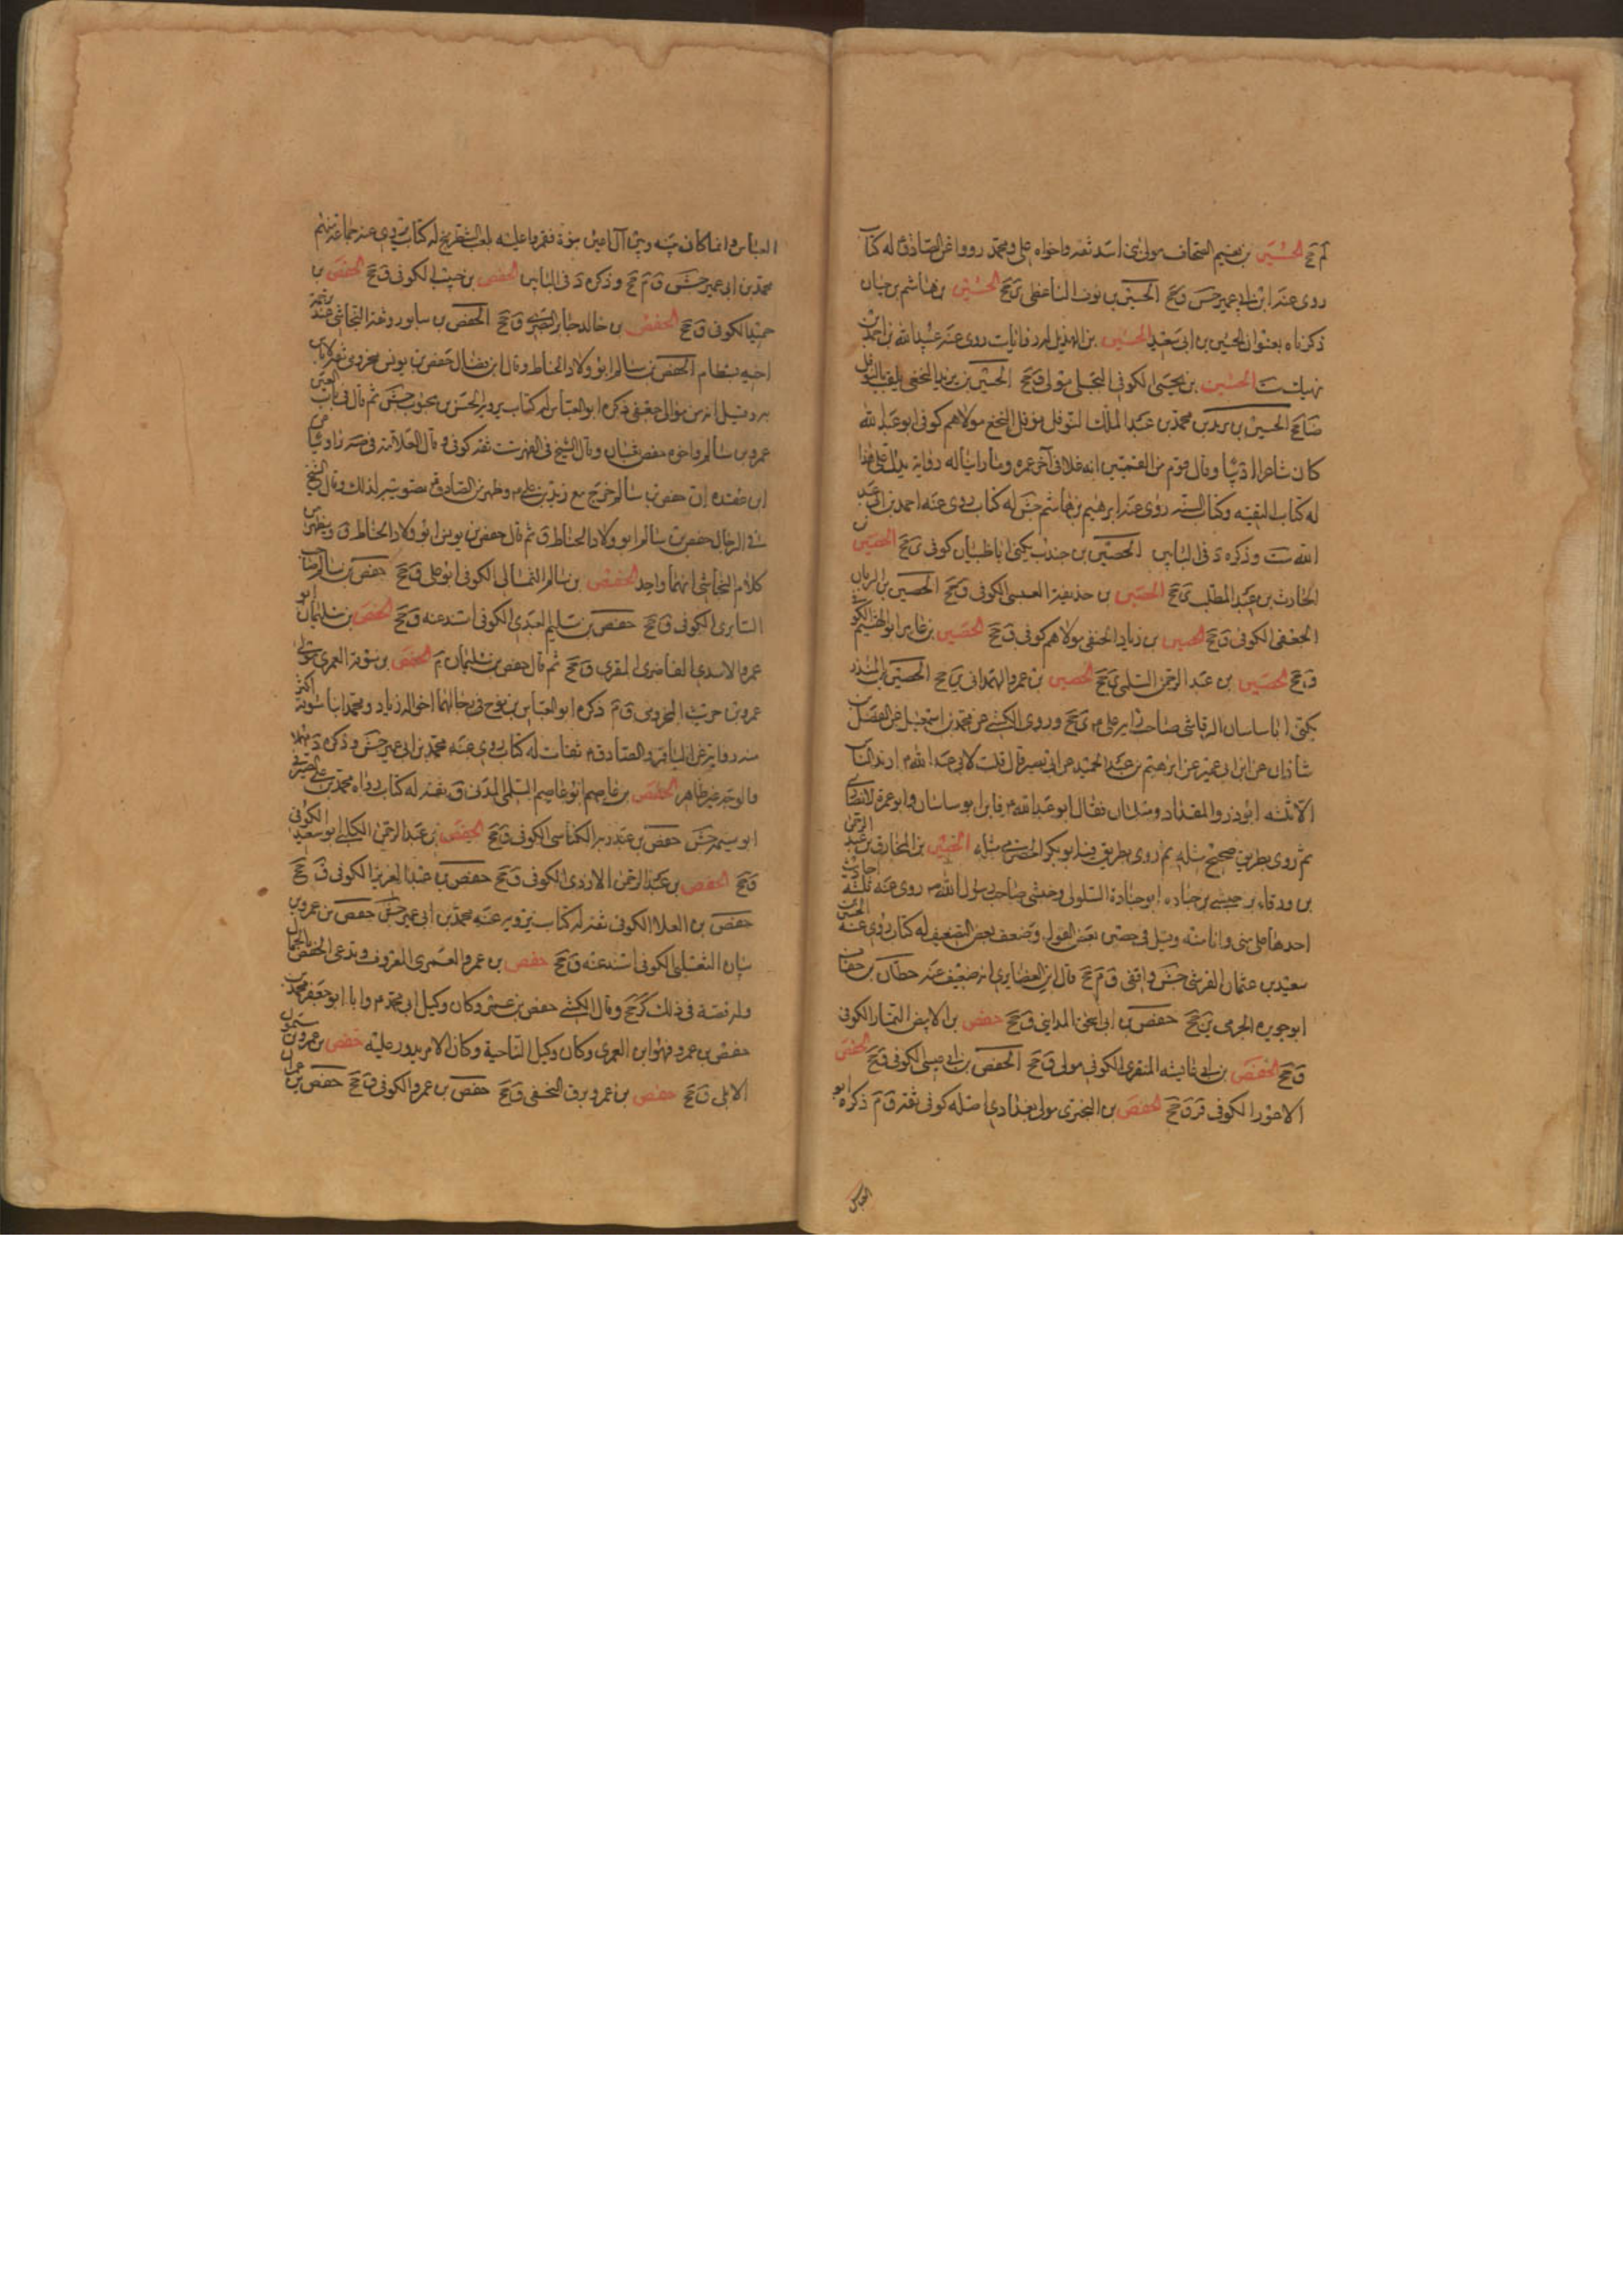 لم جخ الحسين بن نعيم الصحاف مولى بني اسد ثقة واخواه علي ومحمد رووا عن الصادق له كتاب
روى عنه ابن ابي عمير جش ق جخ الحسين بن الباعظى ى جخ الحسين بن هاشم بن حيان
ذكرناه بعنوان الحسين بن ابي سعيد الحسين بن الهذيل له روايات روى عنه عبيد الله بن احمد بن
نهيك ست الحسين بن يحيى الكوفي البجلي مولى ق جخ الحسين بن يزيد النخعي يلقب بالنوفلي
ضا جخ الحسين بن يزيد بن محمد بن عبد الملك النوفلي نوفل النخع مولاهم كوفي ابو عبد الله
كان شاعرا اديبا وقال قوم من القميين انه غلا في آخر عمره وما راينا له رواية يدل على هذا
له كتاب التقيه وكتاب السنه روى عنه ابرهيم بن هاشم جش له كتاب روى عنه احمد بن ابي عبد
الله ست وذكره د في البابين الحصين بن جندب يكنى ابا ظبيان كوفي ى جخ الحصين بن
الحارث بن عبد المطلب ى جخ الحصين بن حذيفة العبسي الكوفي ق جخ الحصين بن الزيان
الجعفي الكوفي ق جخ الحصين بن زياد الحنفي مولاهم كوفي ق جخ الحصين بن عامر ابو الهيثم الكوفي
ق جخ الحصين بن عبد الرحمن السلمي ى جخ الحصين بن عمرو الهمداني ى جخ الحصين بن المنذر
يكنى ابا ساسان الرقاشي صاحب رايه علي ى جخ وروى الكشي عن محمد بن اسمعيل عن الفضل بن
شاذان عن ابن ابي عمير عن ابرهيم بن عبد الحميد عن ابي بصير قال قلت لابي عبد الله ارتد الناس
الا ثلثه ابو ذر والمقداد وسلمان فقال ابو عبد الله فاين ابو ساسان وابو عمرة الانصاري
ثم روى بطريق صحيح مثله ثم روى بطريق فيه ابو بكر الحضرمي مثله الحصين بن المخارق بن عبد الرحمن
بن ورقاء بن حبشي بن جناده ابو جنادة السلولي وحبشي صاحب رسول الله روى عنه ثلثة احاديث
احدها علي مني وانا منه وقيل في حصين بعض القول وضعف بعض التضعيف له كتاب روى عنه الحسين بن
سعيد بن عثمان القرشي جش واقفي ق م جخ قال ابن الغضايري انه ضعيف عنه حطان بن خفان
ابو جويره الجرمي ين جخ حفص بن ابي اسحق المدايني ق جخ حفص بن الابيض التمار الكوفي
ق جخ الحفص بن ابي عايشه المنقري الكوفي مولى ق جخ الحفص بن ابي عيسى الكوفي ق جخ الحفص
الاعور الكوفي قر ق جخ الحفص بن البختري مولى بغدادي اصله كوفي ثقة ق م ذكره ابو
العباس
العباس وانما كان بينه وبين آل اعين نبوة فغمزوا عليه بلعب الشطرنج له كتاب يروي عنه جماعة منهم
محمد بن ابي عمير جش ق م جخ وذكره د في البابين الحفص بن حبيب الكوفي ق جخ الحفص بن
حميد الكوفي ق جخ الحفص بن خالد جابر البصري ق جخ الحفص بن سابور وثقه النجاشي عند ترجمة
اخيه بسطام الحفص بن سالم ابو ولاد الحناط وقال ابن فضال حفص بن يونس مخزومي ثقة لا باس
به وقيل انه من موالي جعفي ذكره ابو العباس له كتاب يرويه الحسن بن محبوب جش ثم قال في باب العين
عمرو بن سالم واخوه حفص ثقتان وقال الشيخ في الفهرست ثقة كوفي وقال العلامة في صه زاد شيئا عن
ابن عقده ان حفص بن سالم خرج مع زيد بن علي وظهر من الصادق تصويبه لذلك وقال الشيخ
في الرجال حفص بن سالم ابو ولاد الحناط ق ثم قال حفص بن يونس ابو ولاد الحناط ق ويظهر من
كلام النجاشي انهما واحد الحفص بن سالم الثمالي الكوفي ابو علي ق جخ حفص بن سالم صاحب
السابري الكوفي ق جخ حفص بن سليم العبدي الكوفي اسند عنه ق جخ الحفص بن سليمان ابو
عمرو الاسدي الغاضري المقري ق جخ ثم قال حفص بن سليمان م الحفص بن سوقة العمري مولى
عمرو بن حريث المخزومي ق م ذكره ابو العباس بن نوح في رجالهما اخواه زياد ومحمد ابنا سوقة اكثر
منه رواية عن الباقر والصادق ثقات له كتاب روى عنه محمد بن ابي عمير جش وذكره د مهملا
والوجه غير ظاهر الحفص بن عاصم ابو عاصم السلمي المدني ق ثقة له كتاب رواه محمد بن علي الصيرفي
ابو سمينه جش حفص بن عبد ربه الكناسي الكوفي ق جخ الحفص بن عبد الرحمن الكلبي ابو سعيد الكوفي
ق جخ الحفص بن عبد الرحمن الازدي الكوفي ق جخ حفص بن عبد العزيز الكوفي ق جخ
حفص بن العلا الكوفي ثقة له كتاب يرويه عنه محمد بن ابي عمير جش حفص بن عمرو بن
بيان التغلبي الكوفي اسند عنه ق جخ حفص بن عمرو العمري المعروف ويدعى الحفص بالجمال
وله قصة في ذلك كر جخ وقال الكشي حفص بن عمرو كان وكيل ابي محمد واما ابو جعفر محمد بن
حفص بن عمرو فهو ابن العمري وكان وكيل الناحية وكان الامر يدور عليه حفص بن عمرو بن ميمون
الابلي ق جخ حفص بن عمرو برق النخعي ق جخ حفص بن عمرو الكوفي ق جخ حفص بن عمران